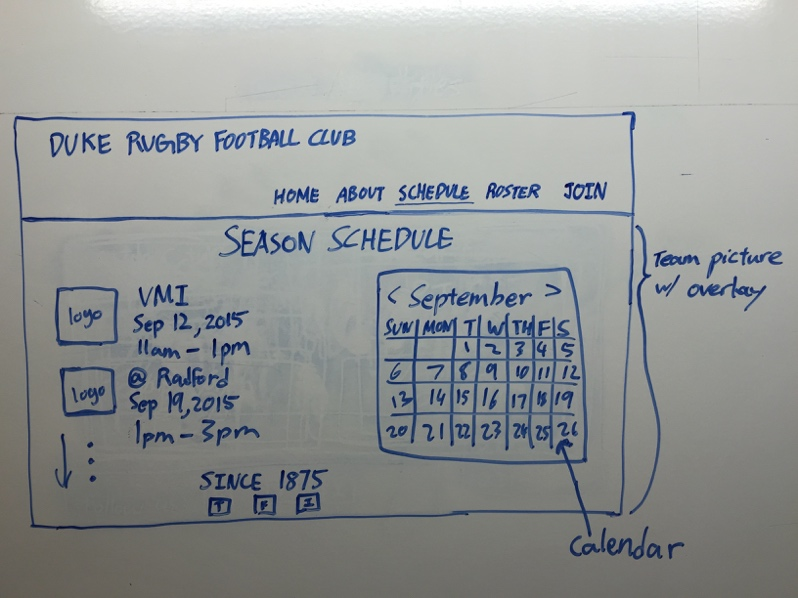 DUKE RUGBY FOOTBALL CLUB
HOME ABOUT SCHEDULE ROSTER JOIN
SEASON SCHEDULE
logo
VMI
Sep 12, 2015
11am - 1pm
logo
@ Radford
Sep 19, 2015
1pm - 3pm
< September >
SUN MON T W TH F S
1 2 3 4 5
6 7 8 9 10 11 12
13 14 15 16 17 18 19
20 21 22 23 24 25 26
SINCE 1875
T F I
Team picture
w/ overlay
Calendar